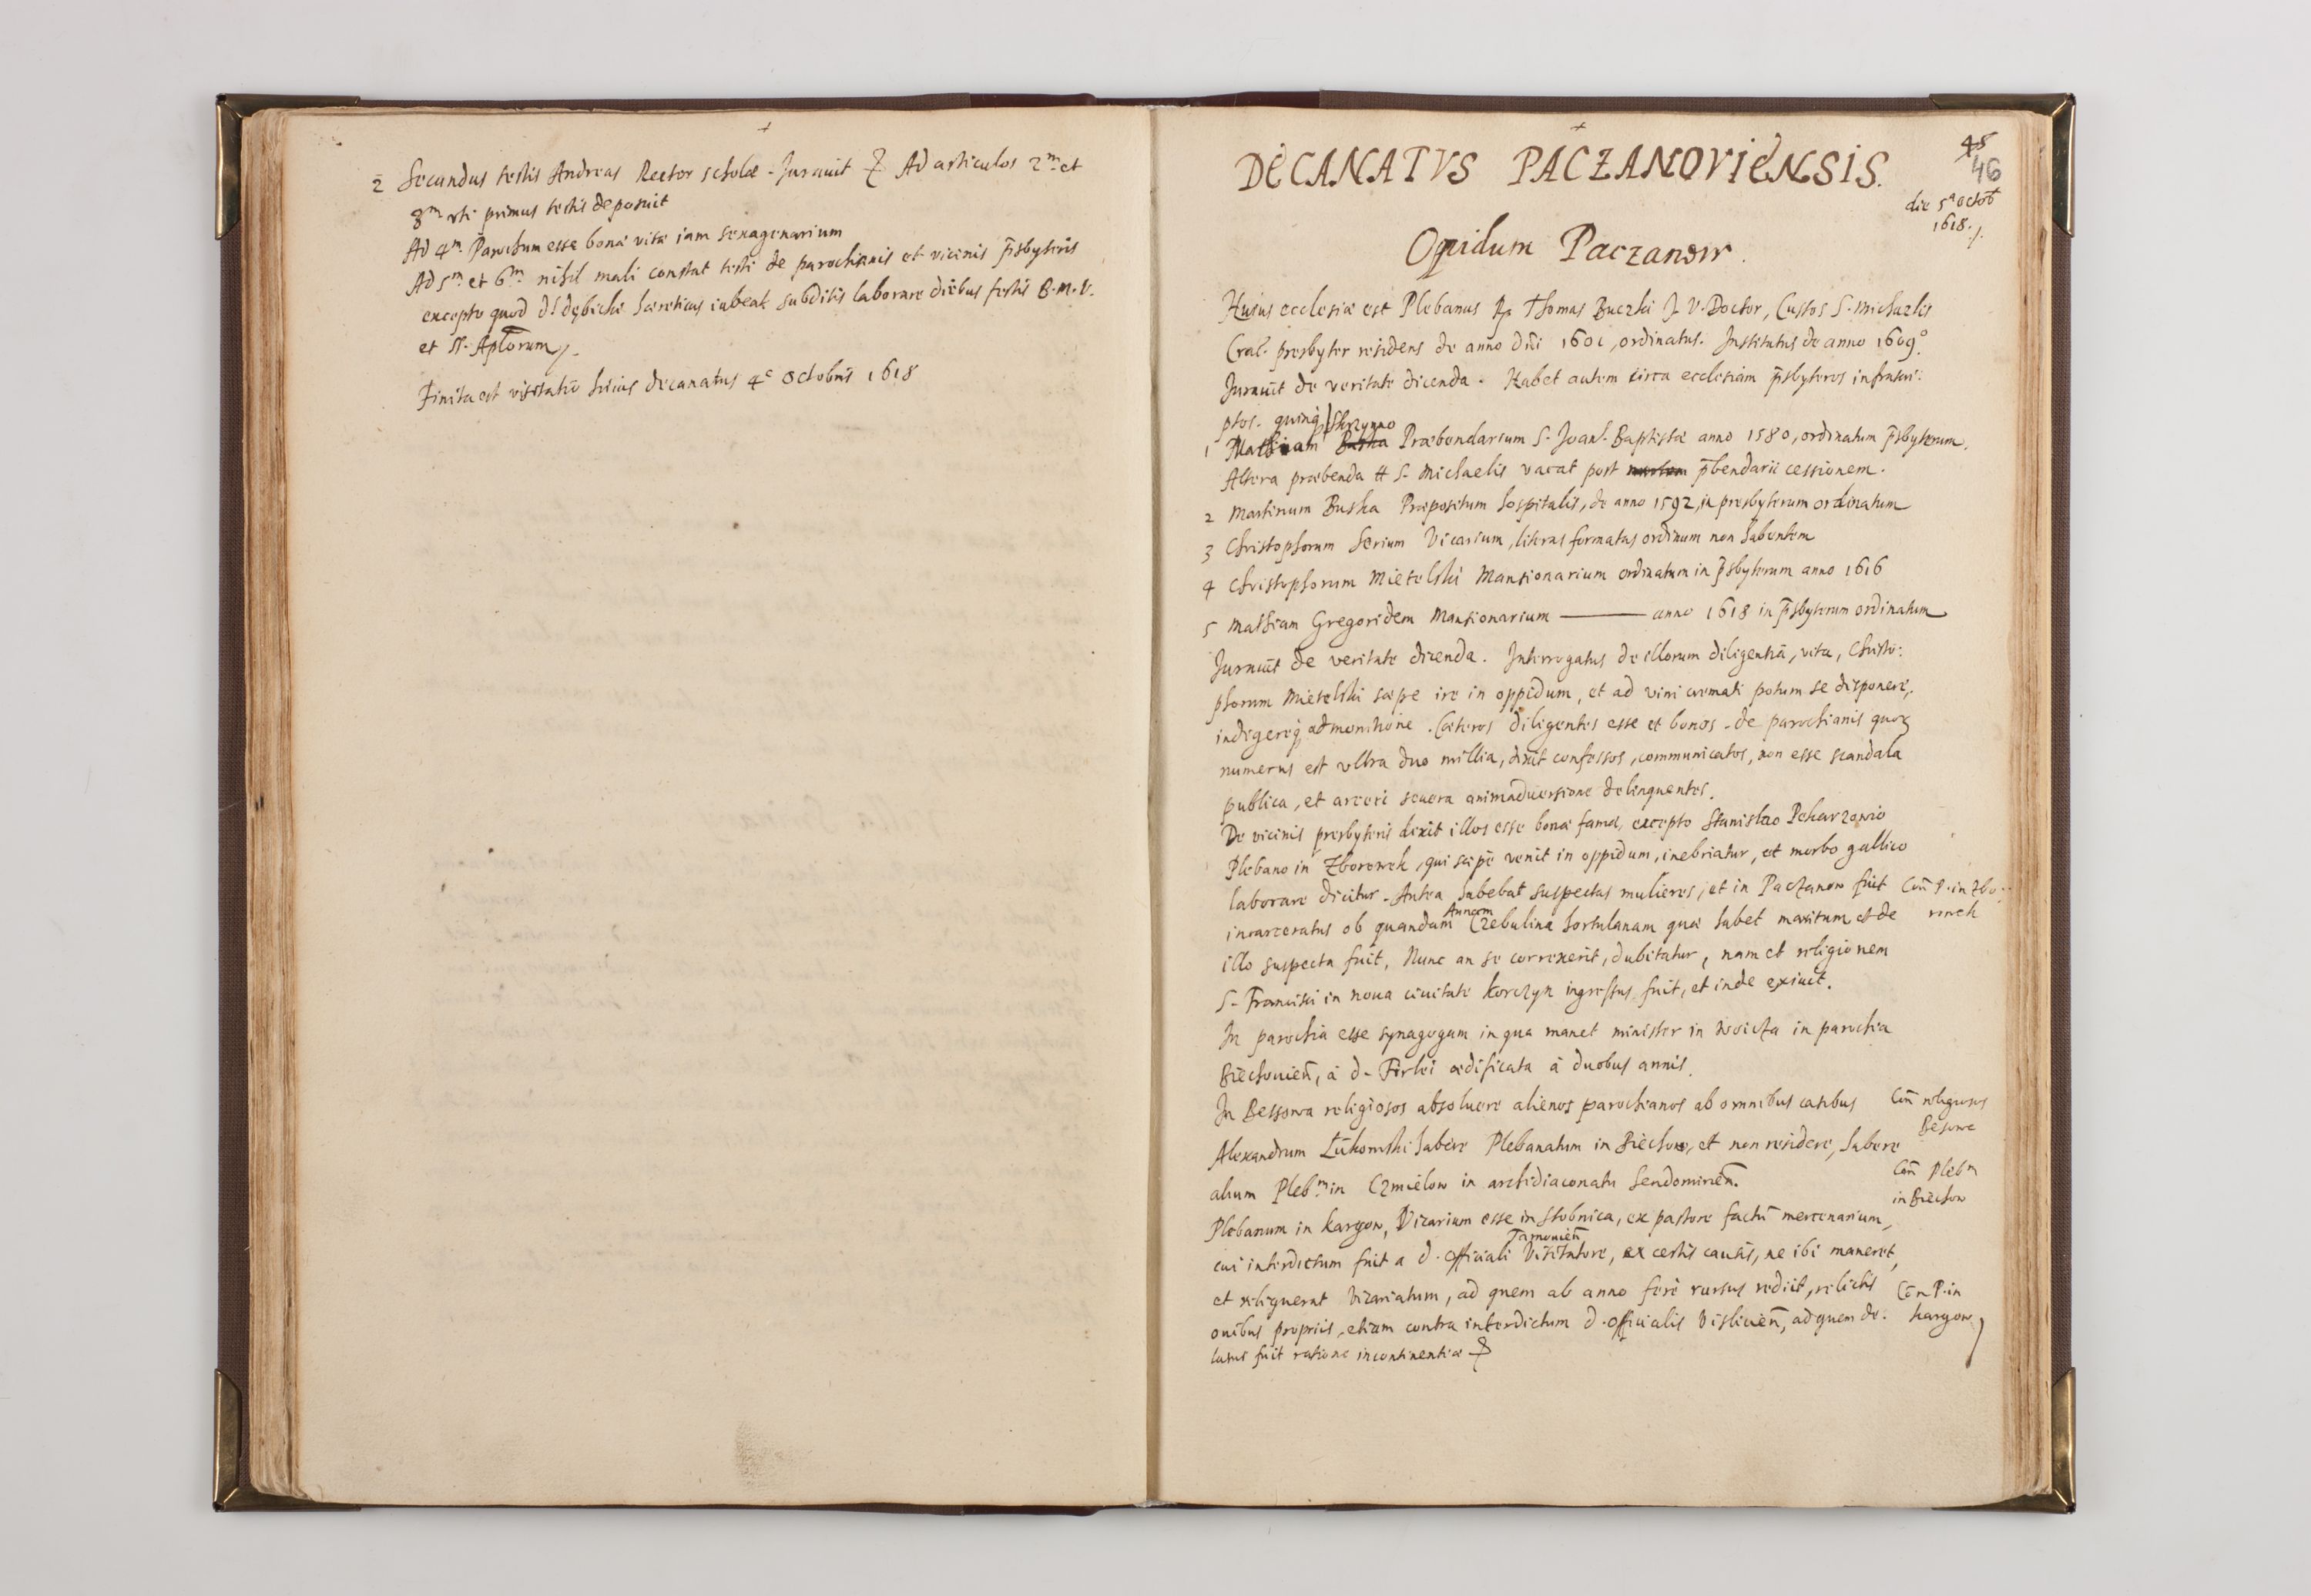 2 Secundus testis Andreas Rector scholæ. Jurauit Ad articulos 2m et
3m vti primus testis deposuit
Ad 4m Parochum esse bonæ vitæ iam sexagenarium
Ad 5m et 6m nihil mali constat testi de parochianis et vicinis p̃sbyteris
excepto quod d: dębicki hæreticus iubeat subditis laborare diebus festis B. M. V.
et SS. Aplorum
Finita est visitatio huius decanatus 4a octobris 1618
DECANATVS PACZANOVIENSIS.
48
46
die 5a octob
1618.
Opidum Paczanow.
Huius ecclesiæ est Plebanus Rp Thomas Buczki J. V. Doctor, Custos S. Michaelis
Crac. presbyter residens de anno dñi 1601, ordinatus. Institutus de anno 1609o.
Jurauit de veritate dicenda. Habet autem circa ecclesiam p̃sbyteros infrascri:
ptos. quinq
Skrzynno
1 Mathiam Præbendarium S. Joan. Baptistæ anno 1580, ordinatum p̃sbyterum.
Altera præbenda S. Michaelis vacat post p̃bendarii cessionem.
2 Martinum Buska Præpositum hospitalis, de anno 1592, in presbyterum ordinatum
3 Christophorum Serium Vicarium, literas formatas ordinum non habentem
4 Christophorum Mietelski Mansionarium ordinatum in p̃sbyterum anno 1616
5 Mathiam Gregoridem Mansionarium ——— anno 1618 in p̃sbyterum ordinatum
Jurauit de veritate dicenda. Interrogatus de illorum diligentia, vita, Christo:
phorum Mietelski sæpe ire in oppidum, et ad vini cremati potum se disponere,
indigereq admonitione. Cæteros diligentes esse et bonos. de parochianis quoꝝ
numerus est vltra duo millia, dixit confessos, communicatos, non esse scandala
publica, et arceri seuera animaduersione delinquentes.
De vicinis presbyteris dixit illos esse bonæ famæ, excepto Stanislao Pekarzowio
Plebano in Zborowek, qui sæpè venit in oppidum, inebriatur, et morbo gallico
laborare dicitur. Antea habebat suspectas mulieres, et in Paczanow fuit
Con P. in Zbo:
rowek
incarceratus ob quandam Annam Czebulina hortulanam quæ habet maritum et de
illo suspecta fuit, Nunc an se correxerit, dubitatur, nam et religionem
S. Francisci in noua ciuitate Korczyn ingressus fuit, et inde exiuit.
In parochia esse synagogam in qua manet minister in woicza in parochia
Biechouien̄, à d. Firlei ædificata à duobus annis.
In Bessowa religiosos absoluere alienos parochianos ab omnibus casibus
Con religiosos
Besowe
Alexandrum Łukomski habere Plebanatum in Biechow, et non residere, habere
alium Plebm in Czmielow in archidiaconatu Sendomirien̄.
Con Plebm
in Biechow
Plebanum in kargow, Vicarium esse in Stobnica, ex pastore factū mercenarium,
cui interdictum fuit a d. officiali Tarnouien̄ Visitatore, ex certis causis, ne ibi maneret,
et reliquerat Vicariatum, ad quem ab anno ferè rursus rediit, relictis
Con P. in
kargow
ouibus propriis, etiam contra interdictum d. officialis Vislicien̄, ad quem de:
latus fuit ratione incontinentiæ